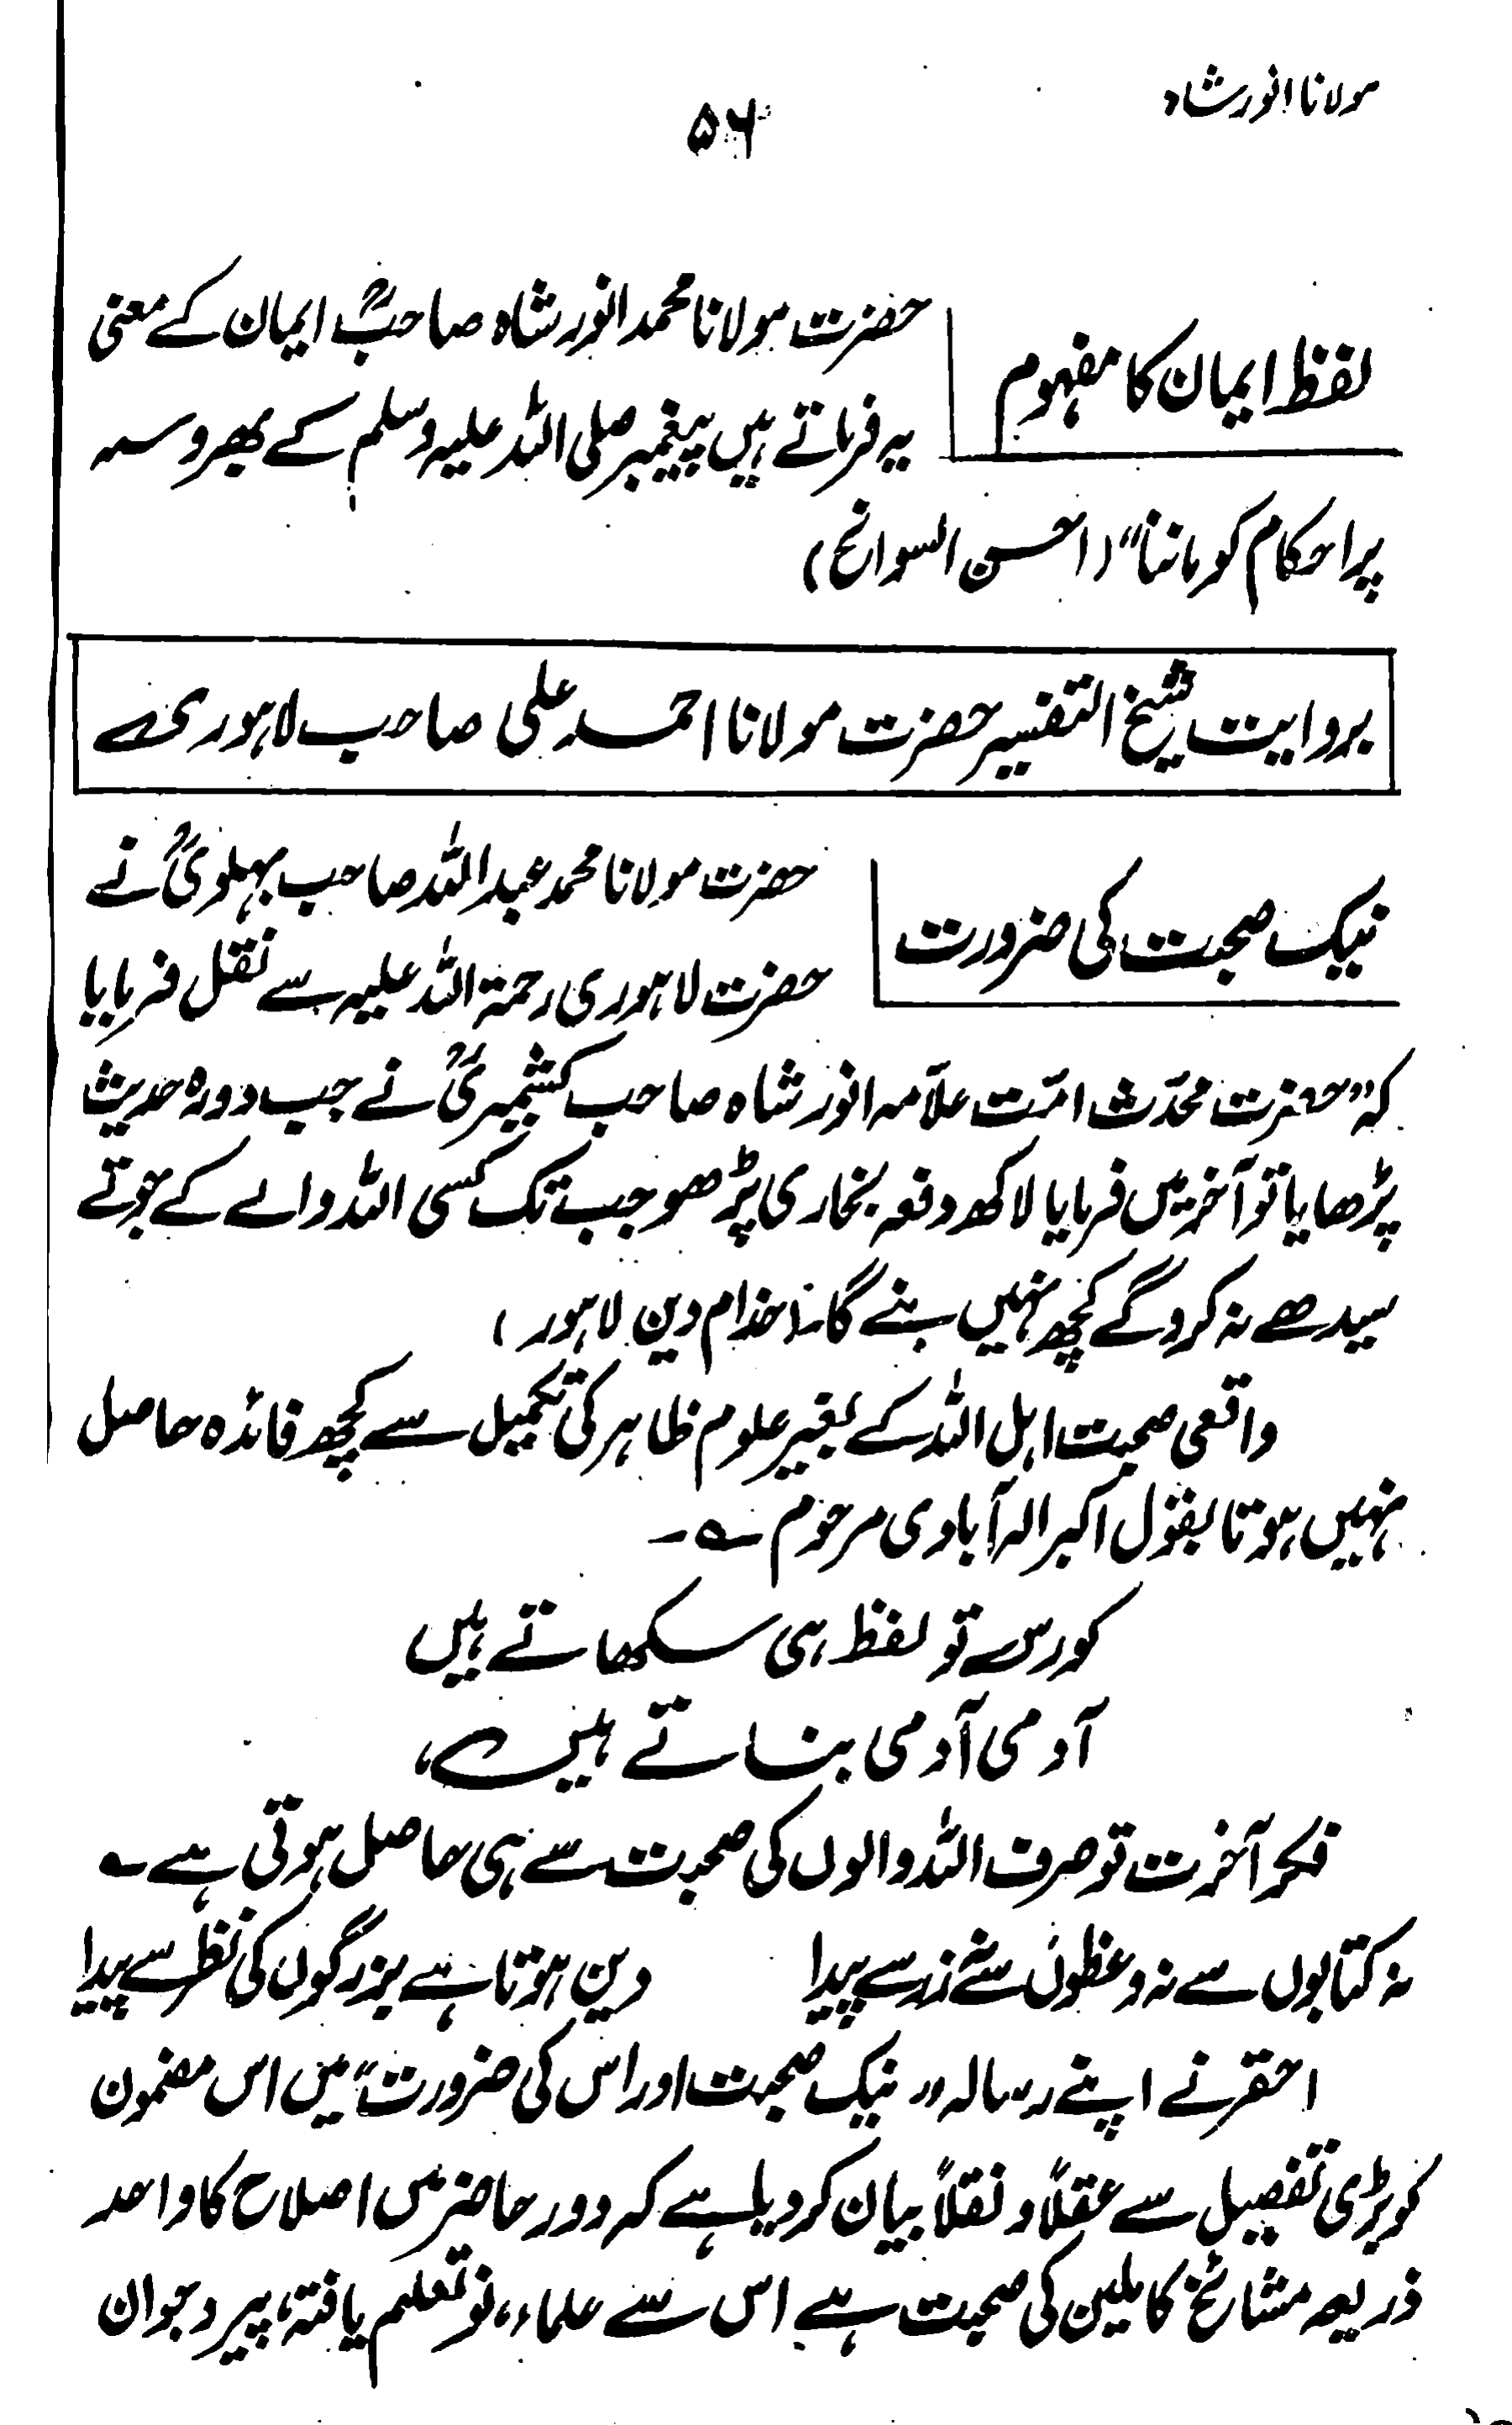 مولانا انور شاہ
۵۶
لفظ ایمان کا مفہوم
حضرت مولانا محمد انور شاہ صاحبؒ ایمان کے معنی
یہ فرماتے ہیں پیغمبر صلی اللہ علیہ وسلم کے بھروسہ
پر احکام کو ماننا" (احسن السوانح)
بروایت شیخ التفسیر حضرت مولانا احمد علی صاحب لاہوری
نیک صحبت کی ضرورت
حضرت مولانا محمد عبد اللہ صاحب بہلویؒ نے
حضرت لاہوری رحمۃ اللہ علیہ سے نقل فرمایا
کہ "حضرت محدّث امّت علاّمہ انور شاہ صاحب کشمیریؒ نے جب دورہ حدیث
پڑھایا تو آخر میں فرمایا لاکھ دفعہ بخاری پڑھو جب تک کسی اللہ والے کے جوتے
سیدھے نہ کروگے کچھ نہیں بنے گا۔ (خدام دین لاہور)
واقعی صحبت اہل اللہ کے بغیر علوم ظاہر کی تکمیل سے کچھ فائدہ حاصل
نہیں ہوتا بقول اکبر الہ آبادی مرحوم ؎
کورس تو لفظ ہی سکھاتے ہیں
آدمی آدمی بناتے ہیں،
فکر آخرت تو صرف اللہ والوں کی صحبت سے ہی حاصل ہوتی ہے ؎
نہ کتابوں سے نہ وعظوں سے نہ زر سے پیدا دین ہوتا ہے بزرگوں کی نظر سے پیدا
احقر نے اپنے رسالہ "نیک صحبت اور اس کی ضرورت" میں اس مضمون
کو بڑی تفصیل سے عقلاً و نقلاً بیان کر دیا ہے کہ دور حاضر میں اصلاح کا واحد
ذریعہ مشائخ کاملین کی صحبت ہے اس سے علماء، نو تعلیم یافتہ، پیر و جوان